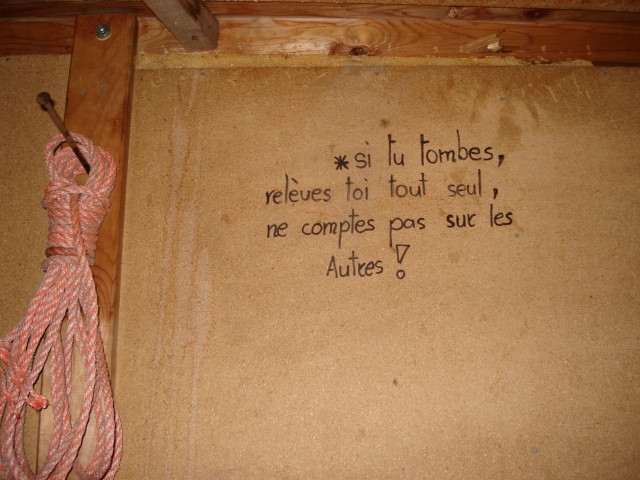 *si tu tombes,
relèves toi tout seul,
ne comptes pas sur les
Autres !